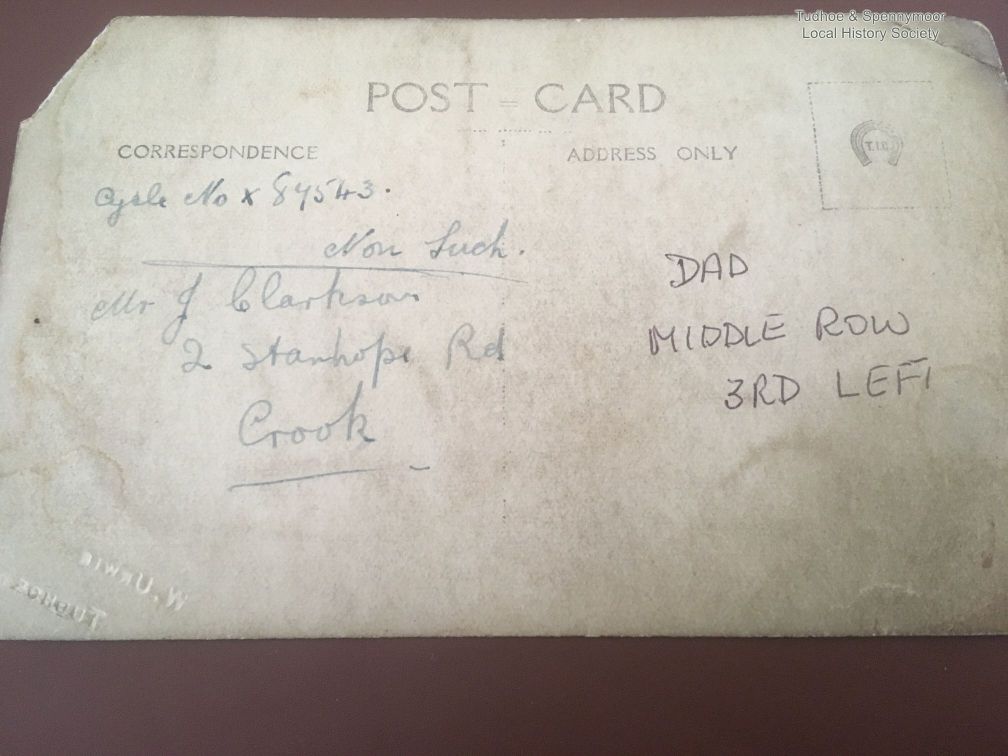 Tudhoe & Spennymoor
Local History Society
POST = CARD
CORRESPONDENCE
ADDRESS ONLY
T.I.C.
Cycle No x 87543.
Non Such.
Mr J Clarkson
2 Stanhope Rd
Crook
DAD
MIDDLE ROW
3RD LEFT
W. URWIN
TUDHOE